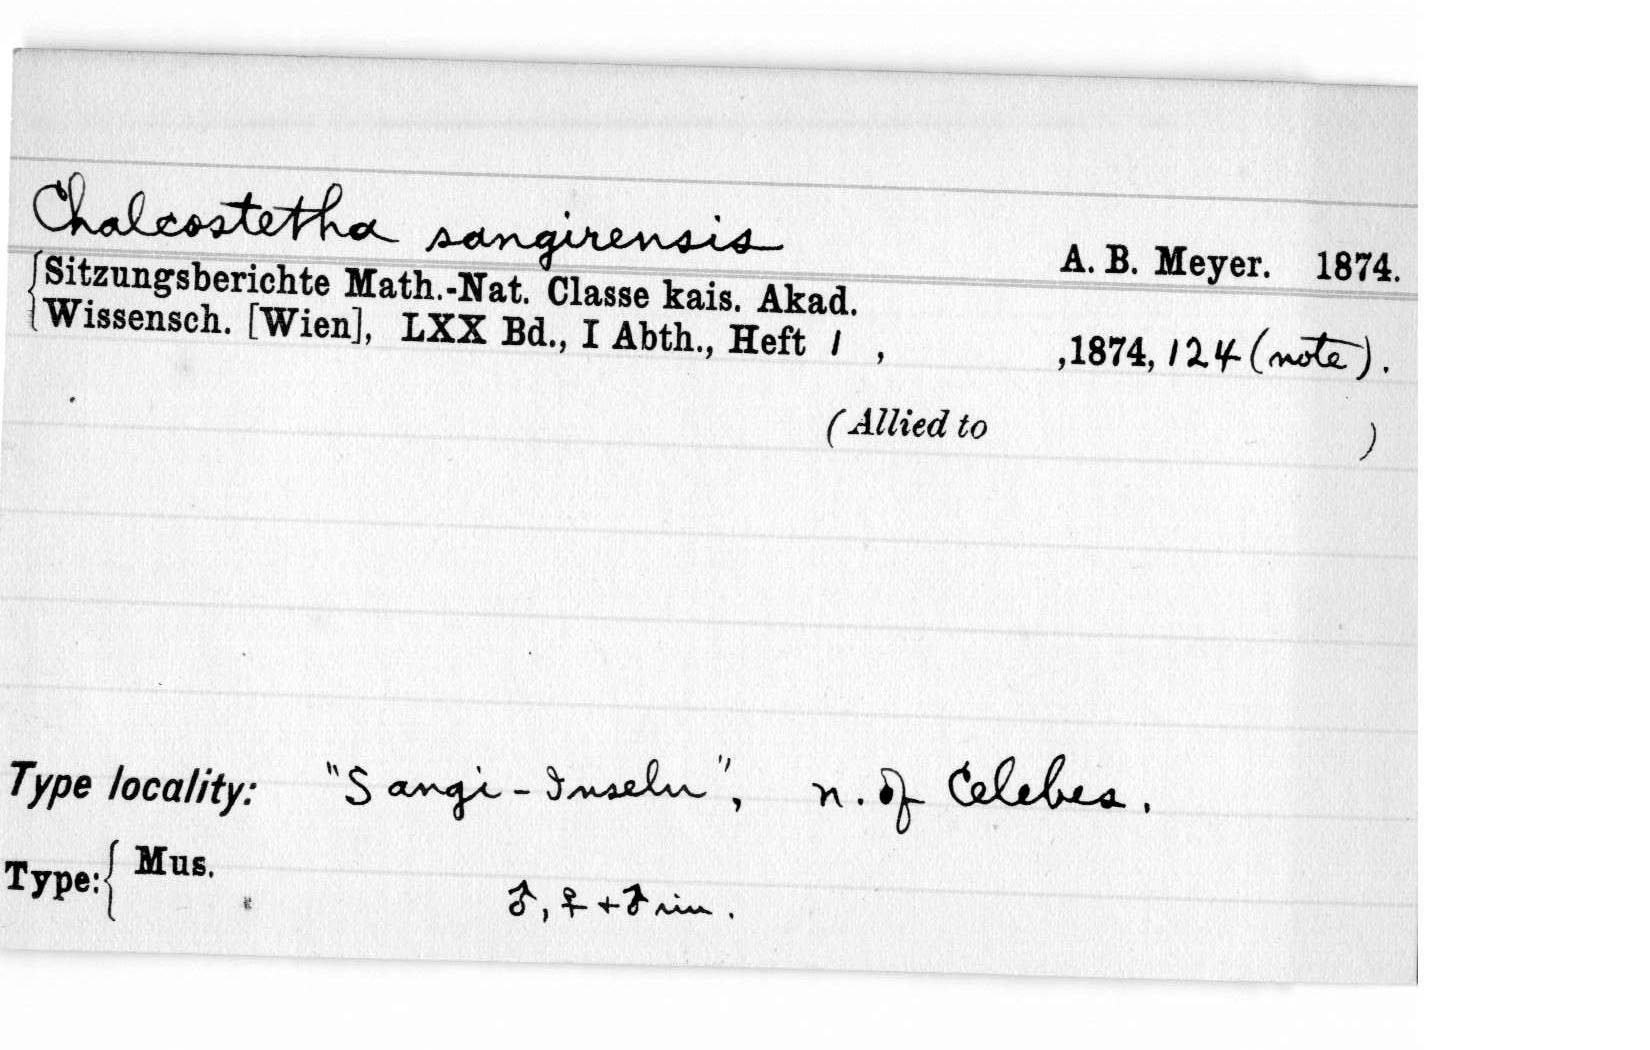 Chalcostetha sangirensis A. B. Meyer. 1874.
{Sitzungsberichte Math.-Nat. Classe kais. Akad.
Wissensch. [Wien], LXX Bd., I Abth., Heft 1 , ,1874, 124 (note).
(Allied to )
Type locality: "Sangi-Inseln", n. of Celebes.
Type:{ Mus.
♂, ♀ + ♂ im.